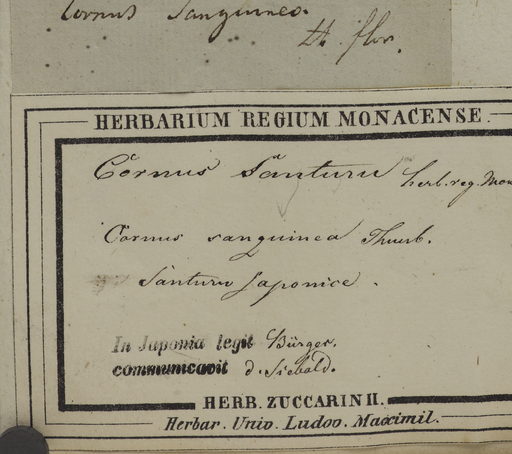 Cornus Sanguinea.
H. flor.
HERBARIUM REGIUM MONACENSE.
Cornus Santuru herb. reg. Mon
Cornus sanguinea Thunb.
Santuru Japonice.
In Japonia legit Bürger.
communicavit d. Siebold.
HERB. ZUCCARINII.
Herbar. Univ. Ludov. Maximil.